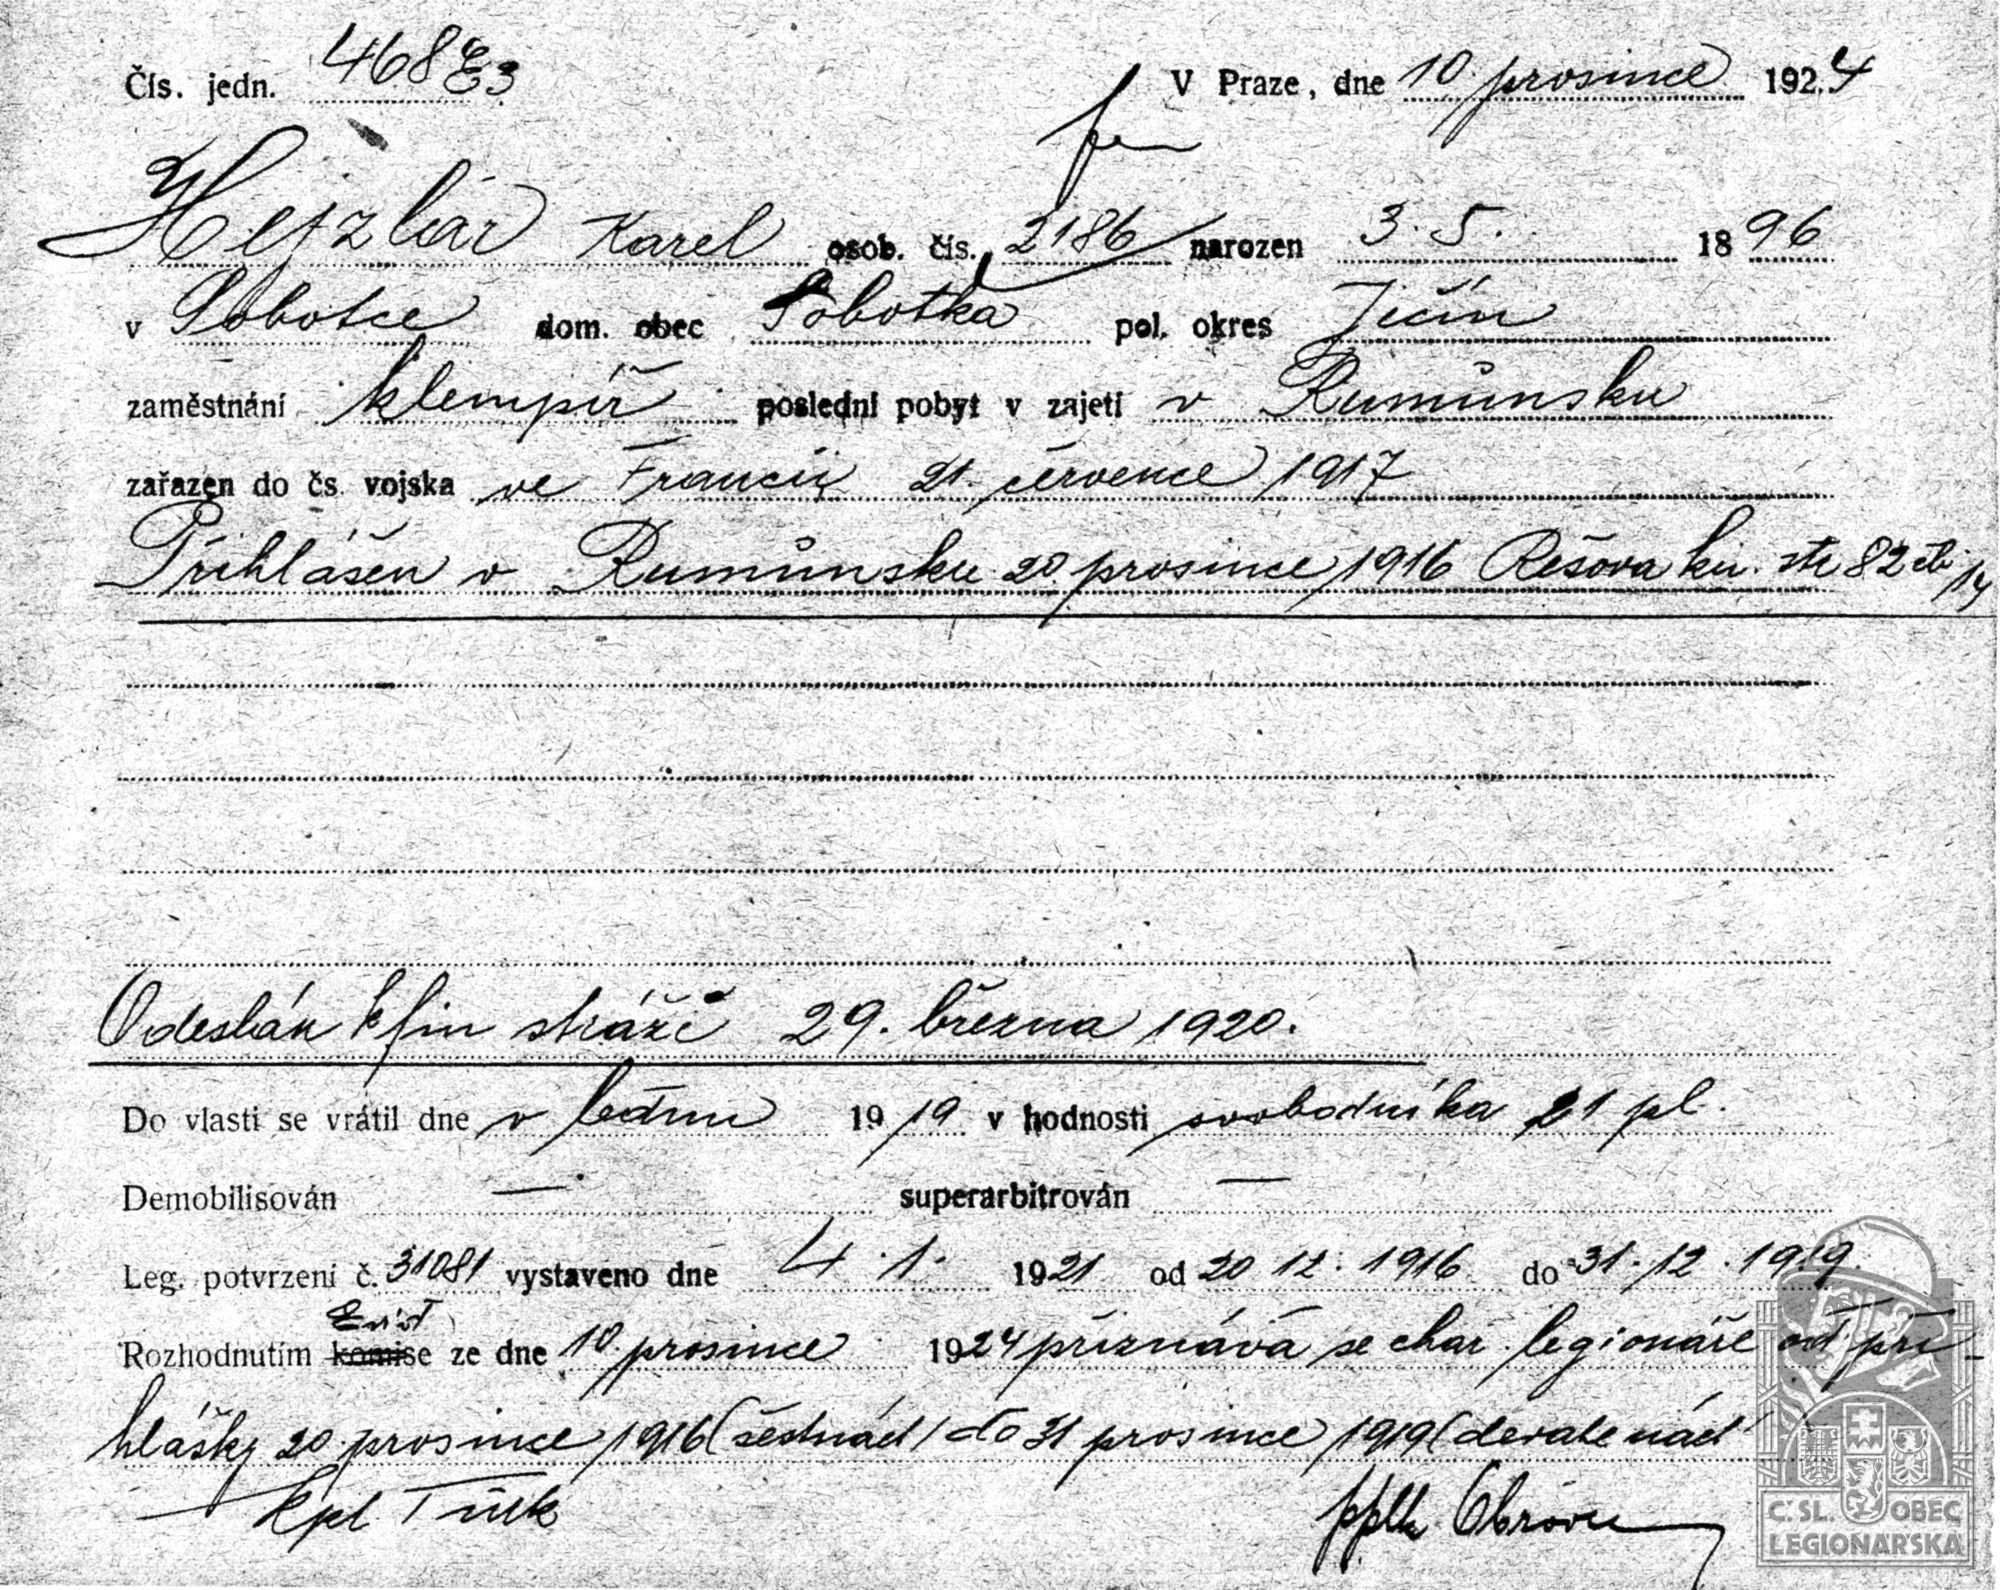 Čís. jedn. 468 E3 V Praze, dne 10. prosince 1924
Hejzlar Karel osob. čís. 2186 narozen 3. 5. 1896
v Sobotce dom. obec Sobotka pol. okres Jičín
zaměstnání klempíř poslední pobyt v zajetí v Rumůnsku
zařazen do čs. vojska ve Francii 21. července 1917
Přihlášen v Rumůnsku 20. prosince 1916 str 82
Odeslán k fin stráži 29. března 1920.
Do vlasti se vrátil dne v lednu 1919 v hodnosti svobodníka 21 pl.
Demobilisován — superarbitrován —
Leg. potvrzení č. 31081 vystaveno dne 4. 1. 1921 od 20 12. 1916 do 31. 12. 1919.
Evid
Rozhodnutím komise ze dne 10. prosince 1924 přiznává se char. legionáře od při-
hlášky 20. prosince 1916 (šestnáct) do 31 prosince 1919 (devatenáct
kpt.
pplk.
Č. SL. OBEC
LEGIONÁŘSKÁ